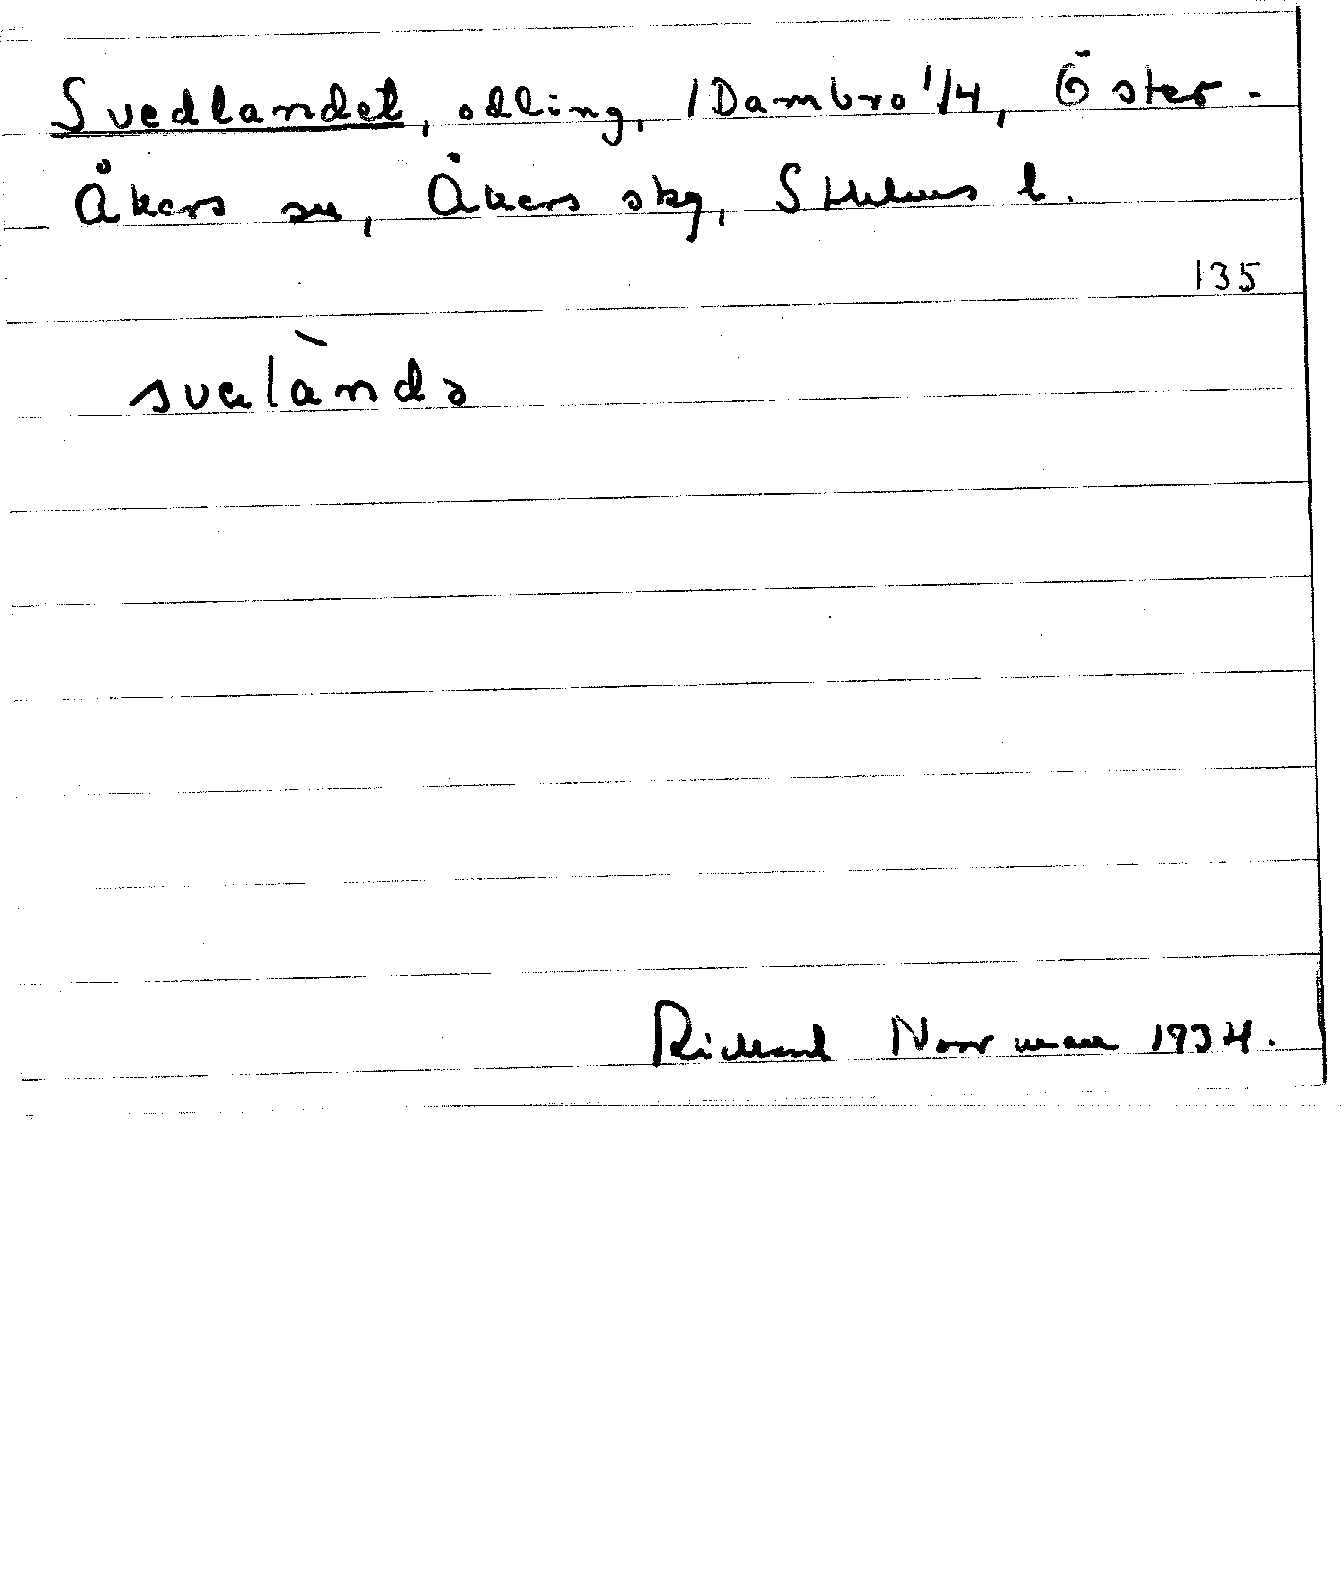 Svedlandet, odling, 1 Dambro 1/4, Öster-
Åkers sn, Åkers skg, Sthlms l.
135
svelànda
Richard Norrman 1934.